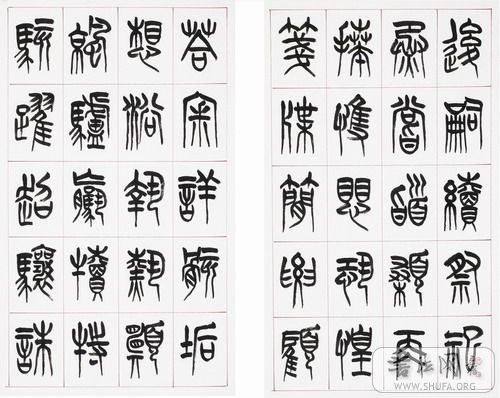 後嗣續祭祀
烝嘗稽顙再
拜悚懼恐惶
箋牒簡要顧
答審詳骸垢
想浴執熱願
涼驢騾犢特
駭躍超驤誅
WWW.SHUFA.ORG